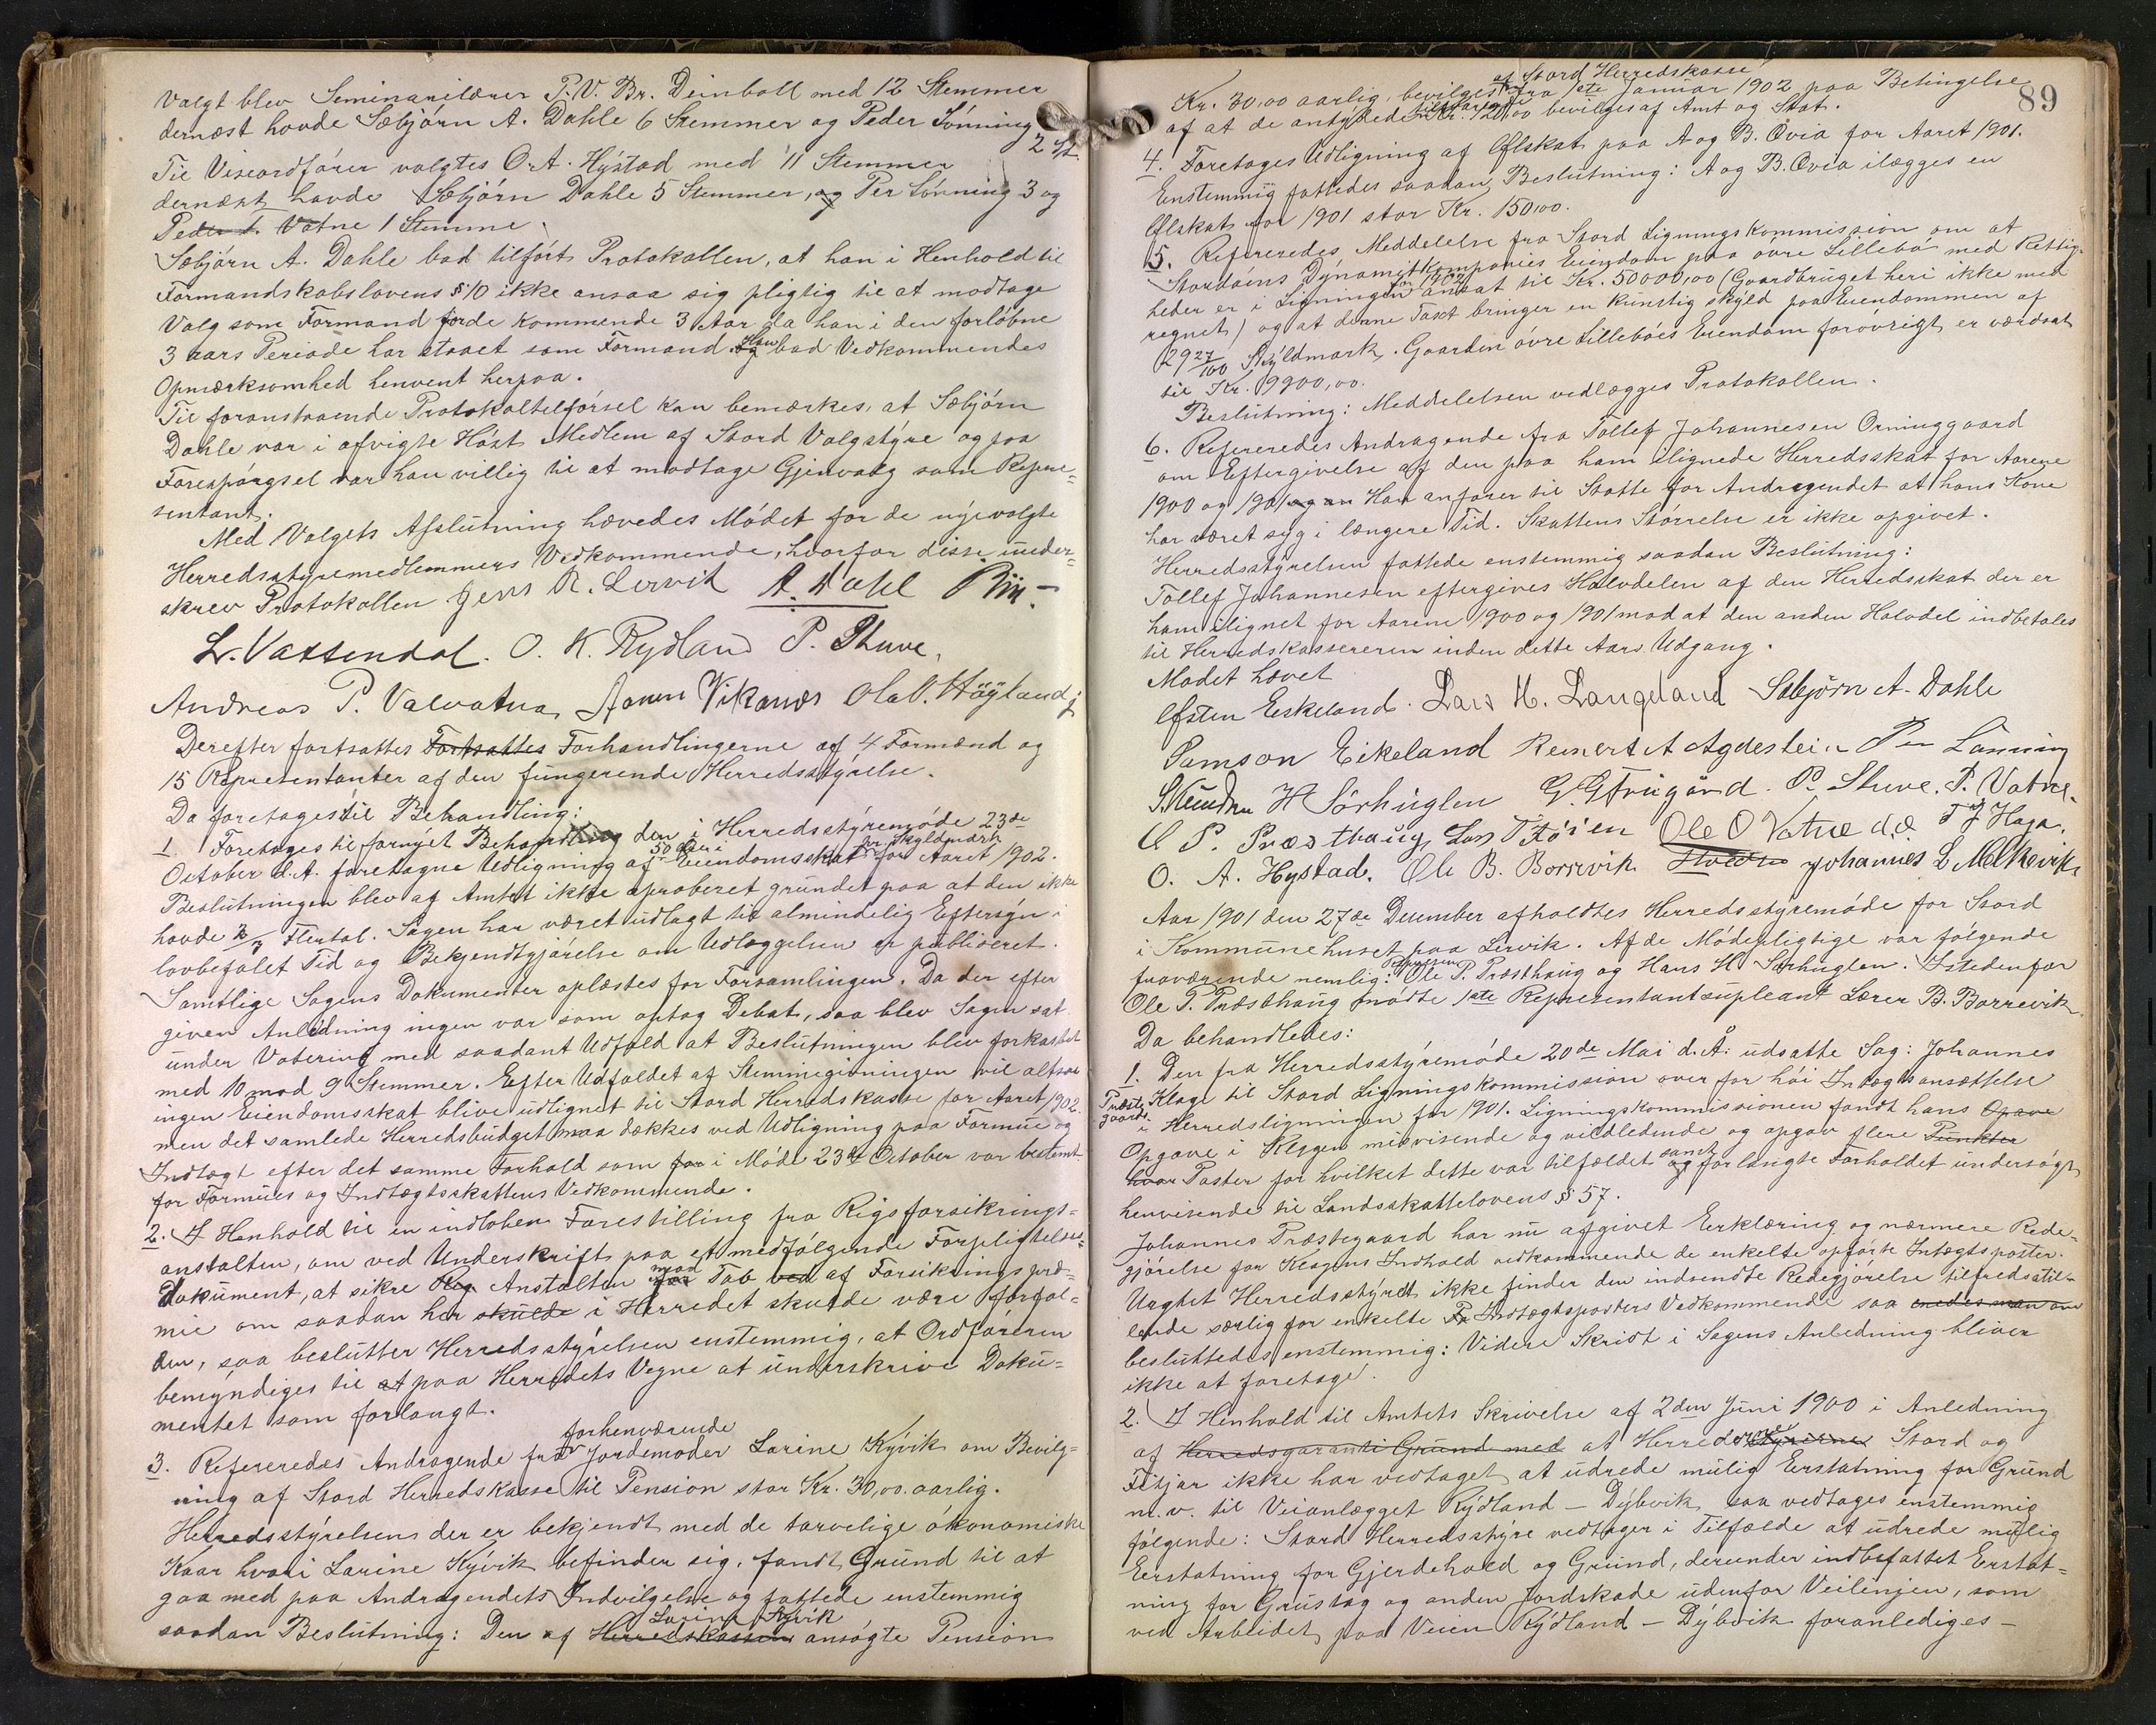 Valgt blev Seminarilærer P. V. Br. Deinboll med 12 Stemmer
dernæst havde Sæbjörn A. Dahle 6 Stemmer og Peder Sönning
2 St.
Til Viseordförer valgtes O. A. Hystad med 11 Stemmer
dernæst havde Sæbjörn Dahle 5 Stemmer, og Per Lönning 3 og
Peder P. Vatne 1 Stemme.
Sæbjörn A. Dahle bad tilfört Protokollen, at han i Henhold til
Formandskabslovens § 10 ikke ansaa sig pligtig til at modtage
Valg som Formand for de kommende 3 Aar da han i den forlöbne
3 aars Periode har staaet som Formand og Han bad Vedkommendes
Opmærksomhed henvent herpaa.
Til foranstaaende Protokoltilförsel kan bemærkes, at Sæbjörn
Dahle var i afvigte Höst Medlem af Stord Valgstyre og paa
Forespörgsel var han villig til at modtage Gjenvalg som Repræ=
sentant.
Med Valgets Afslutning hævedes Mödet for de nyevalgte
Herredsstyremedlemmers Vedkommende, hvorfor disse under=
skrev Protokollen Jens N. Lervik A. Dahl
L. Vassendal. O. K. Rydland P. Stuve.
Andreas P. Valvatna Aamun Vikanes Ola O. Höyland
Derefter fortsattes Fortsattes Forhandlingerne af 4 Formænd og
15 Representanter af den fungerende Herredsstyrelse.
Da foretages til Behandling:
1 Foretages til fornyet Behandling den i Herredsstyremöde 23de
October d. A. foretagne Udligning af 50 Öre i Eiendomsskat pr Skyldmark for Aaret 1902.
Beslutningen blev af Amtet ikke aproberet grundet paa at den ikke
havde 2/3 Flertal. Sagen har været udlagt til almindelig Eftersyn i
lovbefalet Tid og Bekjendtgjörelse om Udlæggelsen er publiceret.
Samtlige Sagens Dokumenter oplæstes for Forsamlingen. Da der efter
given Anledning ingen var som optog Debat, saa blev Sagen sat
under Votering med saadant Udfald at Beslutningen blev forkastet
med 10 mod 9 Stemmer. Efter Udfaldet af Stemmegivningen vil altsaa
ingen Eiendomsskat blive udlignet til Stord Herredskasse for Aaret 1902.
men det samlede Herredsbudget maa dækkes ved Udligning paa Formue og
Indtægt efter det samme Forhold som for i Möde 23de October var bestemt
for Formues og Indtægtsskattens Vedkommende.
2. I Henhold til en indloben Forestilling fra Rigsforsikrings=
anstalten, om ved Underskrift paa et medfölgende Forpligtelses=
Dokument, at sikre Rig Anstalten for mod Tab ved af Forsikringspræ=
mie om saadan her skulde i Herredet skulde være forfal=
den, saa beslutter Herredsstyrelsen enstemmig, at Ordföreren
bemyndiges til at paa Herredets Vegne at underskrive Doku=
mentet som forlangt.
3. Refereredes Andragende fra forhenværende Jordemoder Larine Kyvik om Bevilg=
ning af Stord Herredskasse til Pension stor Kr. 30,00. aarlig.
Herredsstyrelsen der er bekjendt med de tarvelige ökonomiske
Kaar hvori Larine Kyvik befinder sig, fandt Grund til at
gaa med paa Andragendets Indvilgelse og fattede enstemmig
saadan Beslutning: Den af Herredskassen Larine Kyvik ansögte Pension
89
Kr. 30,00 aarlig, bevilges af Stord Herredskasse fra 1ste Januar 1902 paa Betingelse
af at de antydede Kr. 120,00 bevilges af Amt og Stat.
4. Foretages Udligning af Ölskat paa A og B. Ovia for Aaret 1901.
Enstemmig fattedes saadan Beslutning: A og B. Ovia ilægges en
Ölskat for 1901 stor Kr. 150,00.
5. Refereredes Meddelelse fra Stord Ligningskommission om at
Stordöins Dynamitkompanies Eiendom paa övre Lillebö med Rettig=
heder er i Ligningen for 1902 ansat til Kr. 50000,00 (Gaardbruget heri ikke med
regnet) og at denne Taxt bringer en kunstig skyld paa Eiendommen af
29 27/100 Skyldmark. Gaarden övre Lilleböes Eiendom forövrigt er værdsat
til Kr. 9900,00.
Beslutning: Meddelelsen vedlægges Protokollen.
6. Refereredes Andragende fra Tollef Johannesen Orninggaard
om Eftergivelse af den paa ham ilignede Herredsskat for Aarene
1900 og 1901 og an Han anförer til Stötte for Andragendet at hans Kone
har været syg i længere Tid. Skattens Störrelse er ikke opgivet.
Herredsstyrelsen fattede enstemmig saadan Beslutning:
Tollef Johannesen eftergives Halvdelen af den Herredsskat der er
ham ilignet for Aarene 1900 og 1901 mod at den anden Halvdel indbetales
til Herredskassereren inden dette Aars Udgang.
Mödet hævet
Östen Eskeland. Lars H. Langeland Sæbjörn A. Dahle
Samson Eikeland Reinert A Agdestein Per Lönning
H Sörhuglen G. G. Frugård. P. Stuve. P. Vatne.
O P. Præsthaug Lars T Höien Ole O Vatne d.æ. T J Haga.
O. A. Hystad. Ole B. Borrevik Johannes L Melkevik
Aar 1901 den 27de December afholdtes Herredsstyremöde for Stord
i Kommunehuset paa Lervik. Af de Mödepligtige var fölgende
fraværende nemlig: Repræsen Ole P. Præsthaug og Hans H Sörhuglen. Istedenfor
Ole P. Præsthaug mödte 1ste Representantsupleant Lærer B. Borrevik
Da behandledes:
1. Den fra Herredsstyremöde 20de Mai d. Å. udsatte Sag: Johannes
Præste gaards Klage til Stord Ligningskommission over for höi Intægtsansættelse
i Herredsligningen for 1901. Ligningskommissionen fandt hans Opave
Opgave i Klagen misvisende og vildledende og opgav flere Punkter
hvor Poster for hvilket dette var tilfældet og samt forlangte Forholdet undersögt
henvisende til Landsskattelovens § 57.
Johannes Præstegaard har nu afgivet Erklæring og nærmere Rede=
gjörelse for Klagens Indhold vedkommende de enkelte opförte Intægtsposter.
Uagtet Herredsstyret ikke finder den indsendte Redegjörelse tilfredsstil=
lende særlig for enkelte Fr Indtægtsposters Vedkommende saa enedes man om
besluttedes enstemmig: Videre Skridt i Sagens Anledning bliver
ikke at foretage.
2. I Henhold til Amtets Skrivelse af 2den Juni 1900 i Anledning
af Herredsgaranti Grund med at Herrederne Stord og
Fitjar ikke har vedtaget at udrede mulig Erstatning for Grund
m. v. til Veianlægget Rydland – Dybvik saa vedtages enstemmig
fölgende: Stord Herredsstyre vedtager i Tilfælde at udrede mulig
Erstatning for Gjerdehold og Grund, derunder indbefattet Erstat=
ning for Grustag og anden Jordskade udenfor Veilinjen, som
ved Arbeidet paa Veien Rydland – Dybvik foranlediges –